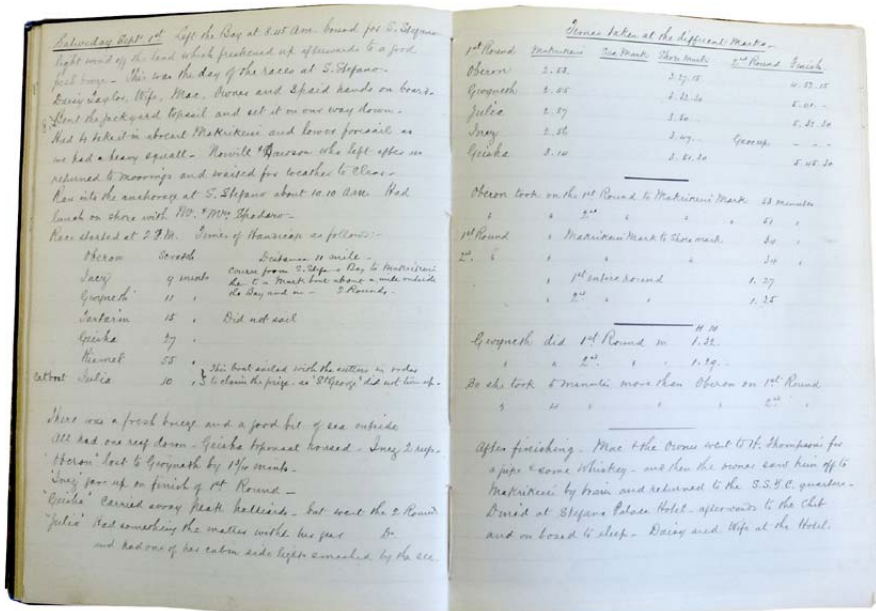 Saturday Sept. 1st Left the Bay at 8.45 Am. bound for S. Stefano
light wind off the land which freshened up afterwards to a good
fresh breeze - This was the day of the races at S. Stefano -
Daisy Taylor, Wife, Mac, Owner and 3 paid hands on board.
Bent the jackyard topsail and set it on our way down -
Had to take it in abreast Makrikeui and lower foresail as
we had a heavy squall - Nowill & Hewson who left after us
returned to moorings and waited for weather to clear -
Ran into the anchorage at S. Stefano about 10.10 Am. Had
lunch on shore with Mr. & Mrs. Spadaro -
Race started at 2 P.M. Times of Handicap as follows :-
Oberon Scratch Distance 11 mile -
Inez 9 minutes course from S. Stefano Bay to Makrikeui
Gwyneth 11 " Mark but about a mile outside
the Bay and in - 2 Rounds -
Tartarin 15 " Did not sail
Geisha 27 "
Kismet 55 "
Catboat Julia 10 " This boat sailed with the cutters in order
to claim the prize as "St George" did not turn up -
There was a fresh breeze and a good bit of sea outside
All had one reef down - Geisha topmast housed - Inez 2 reefs -
"Oberon" lost to Gwyneth by
"Inez" gave up on finish of 1st Round -
"Geisha" carried away peak halliards - but went the 2 Rounds
"Julia" Had something the matter with her gear Do
and had one of her cabin side lights smashed by the sea.
Times taken at the different Marks -
1st Round Makrikeui Sea Mark Shore Mark 2nd Round Finish.
Oberon 2.53. 3.27.15 4.52.15
Gwyneth 2.55 3.32.20 5.01. -
Julia 2.57 3.40. - 5.32.20
Inez 2.56 3.49. - Gave up - - -
Geisha 3.10 3.51.20 5.45.30
Oberon took on the 1st Round to Makrikeui Mark 53 minutes
" " 2nd " " " 51 "
1st Round " Makrikeui Mark to Shore mark 34 "
2nd " " " " 34 "
" 1st entire round 1.27
" 2nd " " 1.25
H. M
Gwyneth did 1st Round in 1.32.
" " 2nd " " 1.29. -
So she took 5 minutes more than Oberon on 1st Round
" " " " " 2nd "
After finishing - Mac & the Owner went to H. Thompsons for
a pipe & some whiskey - and then the owner saw him off to
Makrikeui by train and returned to the S.S.Y.C. quarters -
Dined at Stefano Palace Hotel - afterwards to the Club
and on board to sleep - Daisy and Wife at the Hotel.